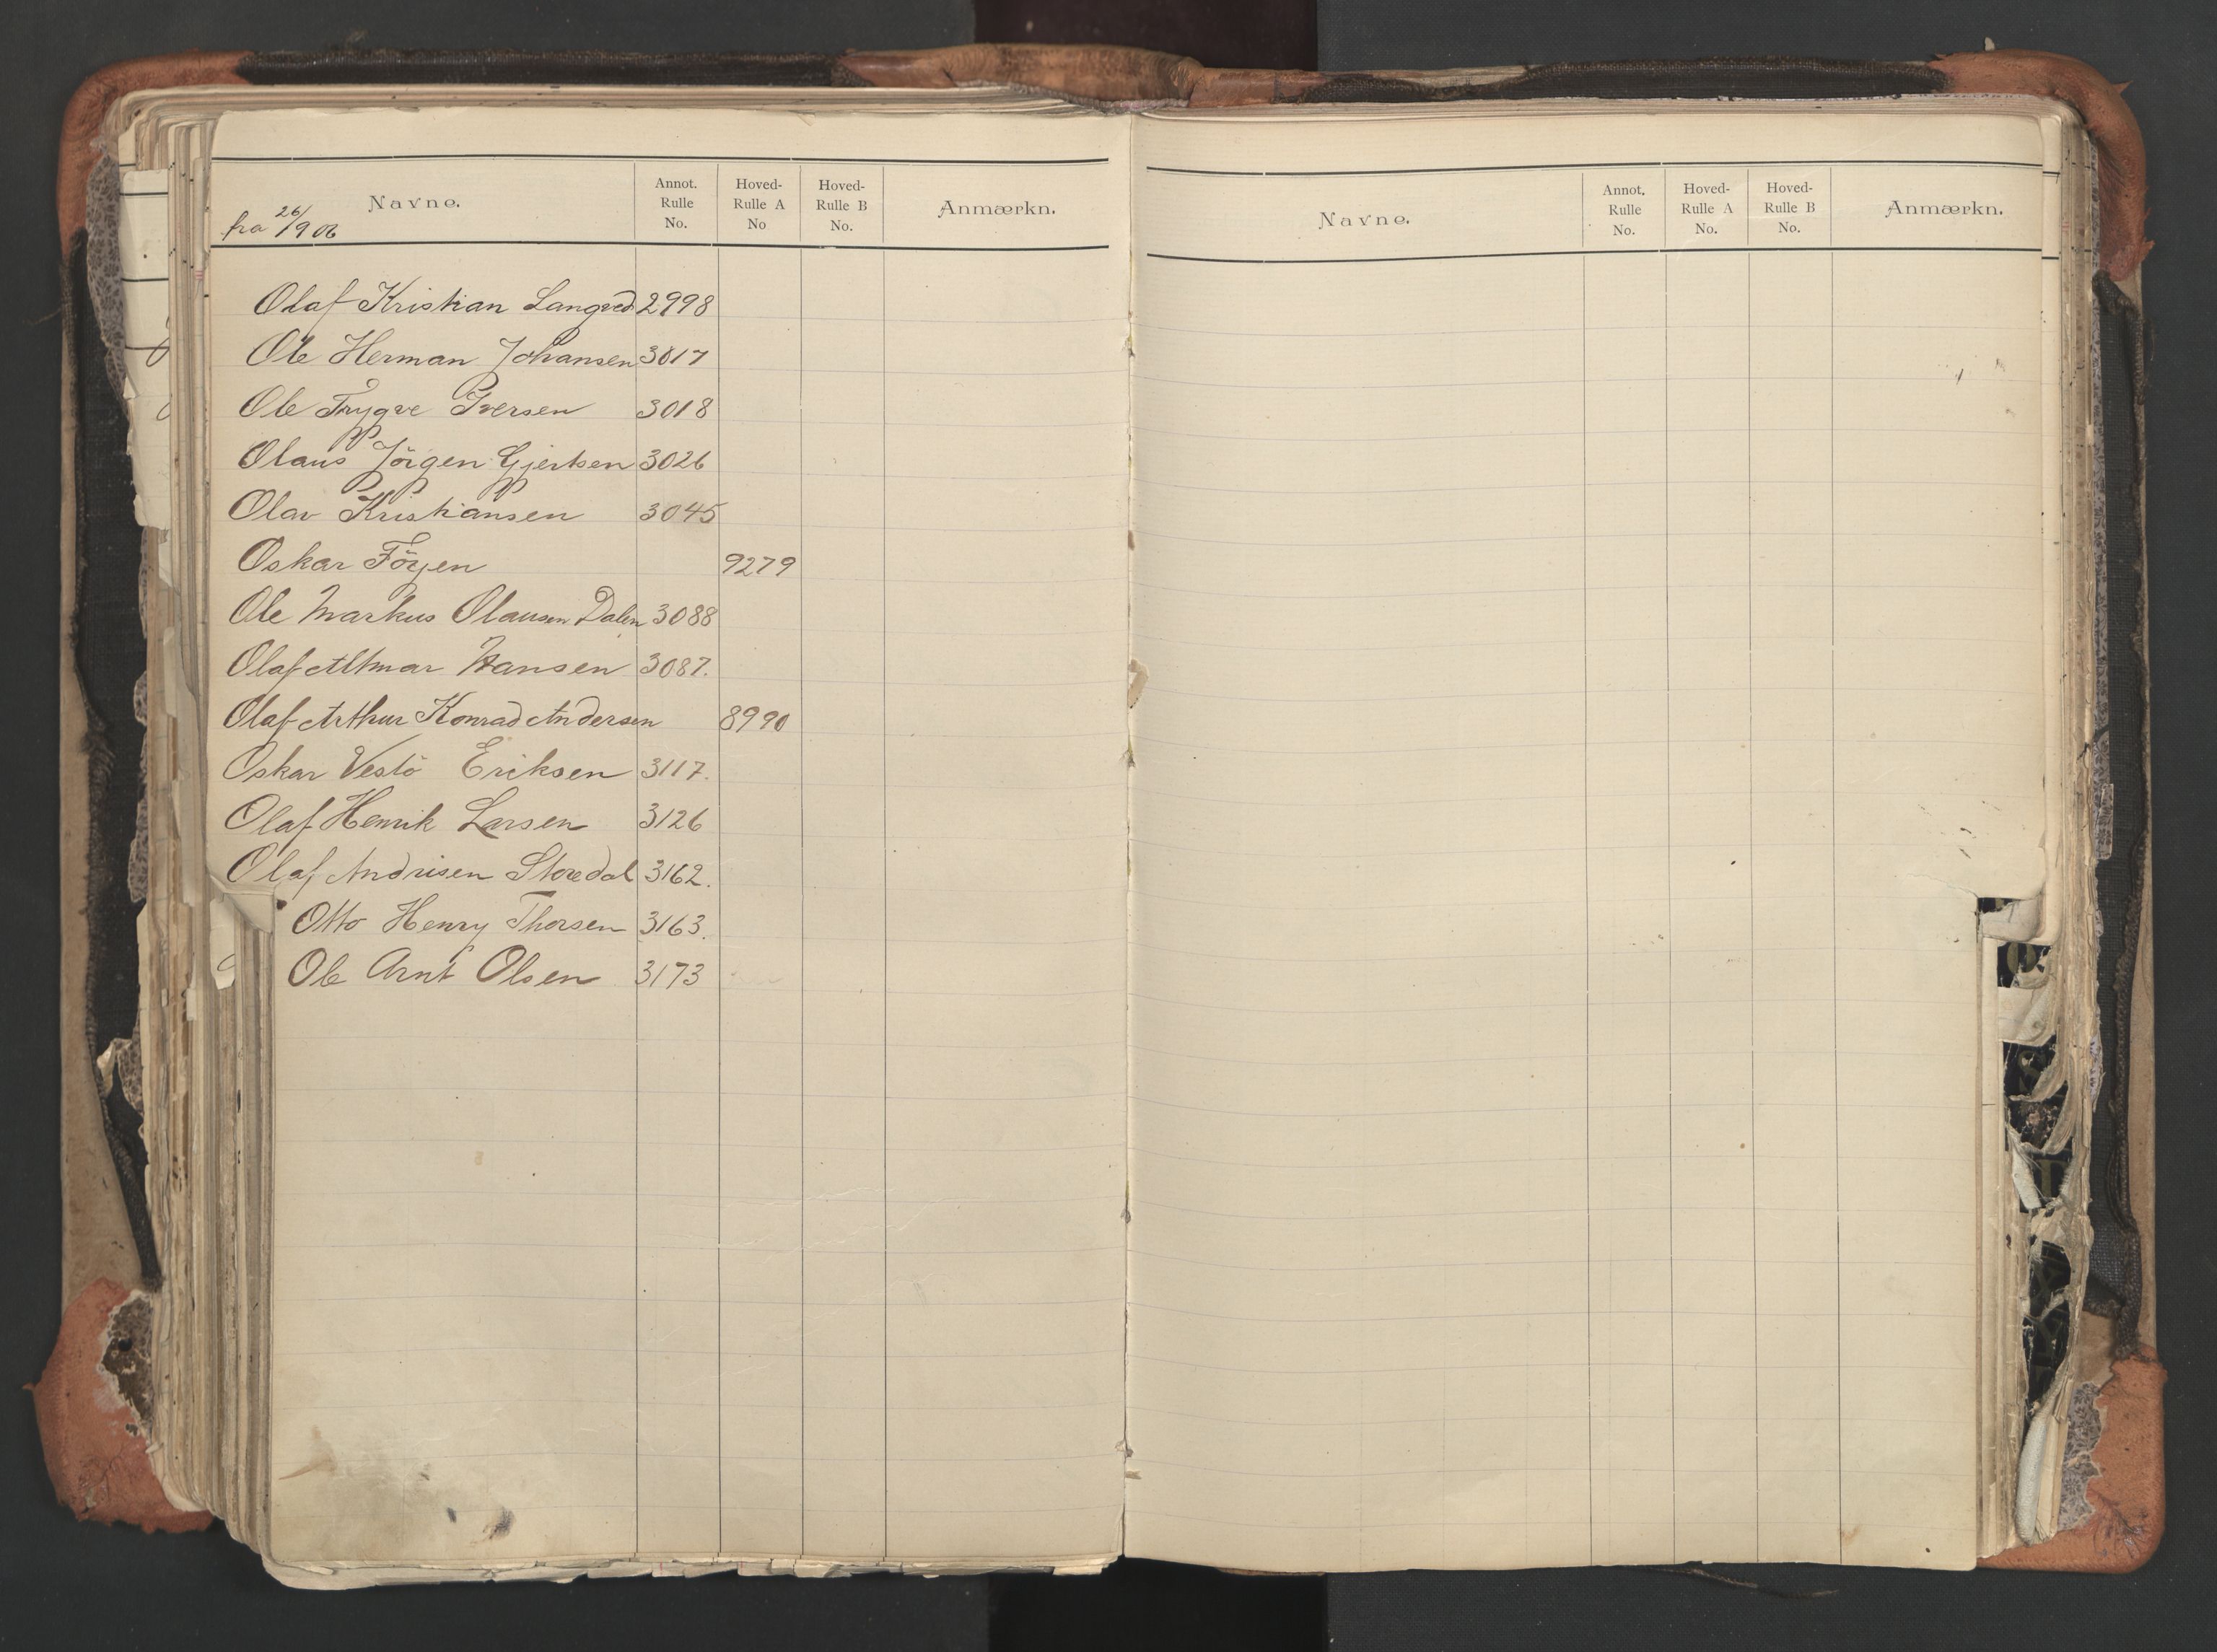 Navne. Annot. Rulle No. Hoved-Rulle A No Hoved-Rulle B No. Anmærkn.
fra 26/9 06
Olaf Kristian Langved 2998
Ole Herman Johansen 3017
Ole Trygve Iversen 3018
Olaus Jörgen Gjertsen 3026
Olav Kristiansen 3045
Oskar Föyen 9279
Ole Markus Olausen Dalen 3088
Olaf Altmar Hansen 3087.
Olaf Arthur Konrad Andersen 8990
Oskar Vestö Eriksen 3117.
Olaf Henrik Larsen 3126
Olaf Andrisen Storedal 3162.
Otto Henry Thorsen 3163.
Ole Arnt Olsen 3173
Navne. Annot. Rulle No. Hoved-Rulle A No. Hoved-Rulle B No. Anmærkn.